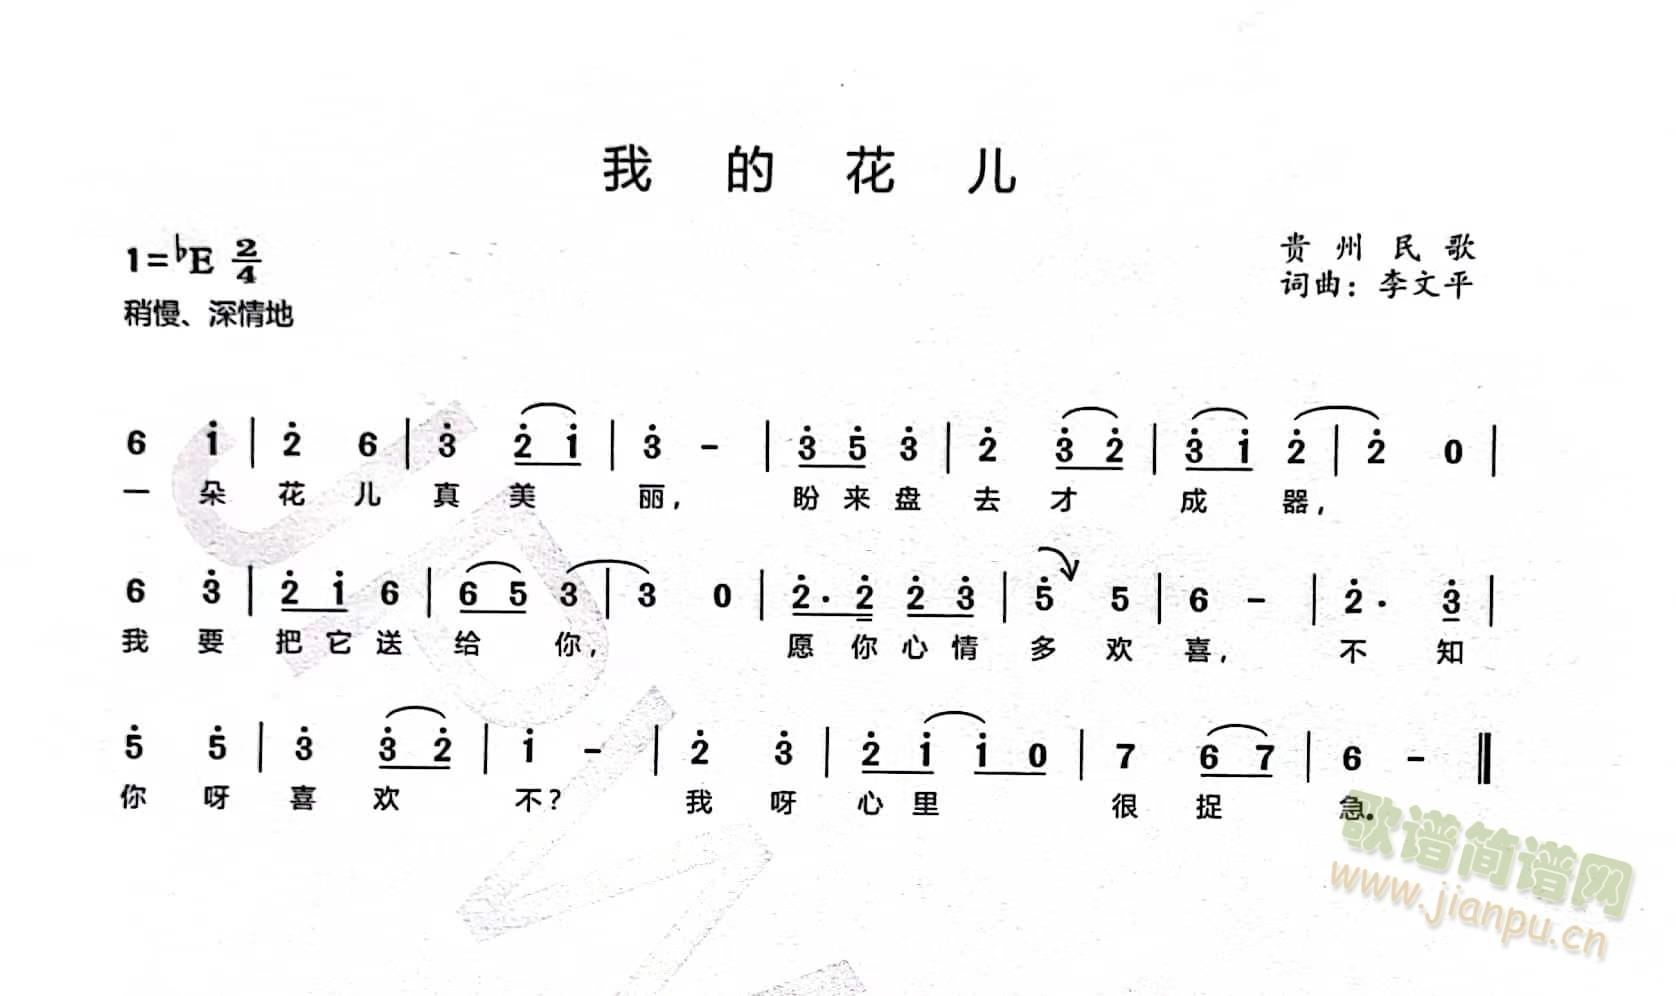 我的花儿
1=♭E 2/4
贵州民歌
词曲：李文平
稍慢、深情地
6 i̇ | 2̇ 6 | 3̇ 2̇ i̇ | 3̇ - | 3̇ 5̇ 3̇ | 2̇ 3̇ 2̇ | 3̇ i̇ 2̇ | 2̇ 0 |
一朵花儿真美丽，盼来盘去才成器，
6 3̇ | 2̇ i̇ 6 | 6 5 3 | 3 0 | 2̇· 2̇ 2̇ 3̇ | 5̇ 5 | 6 - | 2̇· 3̇ |
我要把它送给你，愿你心情多欢喜，不知
5̇ 5̇ | 3̇ 3̇ 2̇ | i̇ - | 2̇ 3̇ | 2̇ i̇ i̇ 0 | 7 6 7 | 6 - ‖
你呀喜欢不？我呀心里很捉急。
歌谱简谱网
www.jianpu.cn